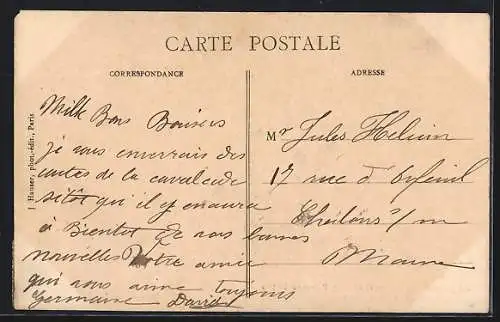 CARTE POSTALE
CORRESPONDANCE
ADRESSE
J. Hauser, phot.-édit., Paris
Mille Bons Baisers
je vous enverrais des
cartes de la cavalcade
sitôt qu'il y en aura
à Bientôt de vos bonnes
nouvelles Votre amie
qui vous aime toujours
Germaine David
Mr Jules
17 rue d'Orfeuil
Chalons s/m
Marne